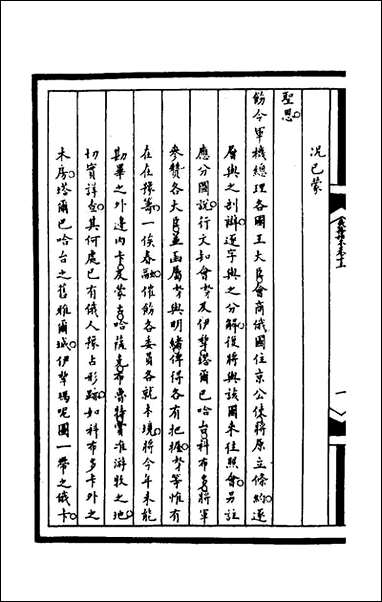 況已蒙
聖恩
飭令軍機總理各國王大臣會商俄國住京公使將原立條約逐
層與之剖辯逐字與之分解復將與該國來往照會另註
應分圖說行文知會芽及伊犂塔爾巴哈台科布多將軍
參贊各大臣並函屬芽與明緒俾得各有把握芽等惟有
在在豫籌一俟春融催飭各委員各就卡境將今年未能
勘畢之外邊內卡及蒙古哈薩克布魯特實在游牧之地
切實詳查其何處已有俄人豫占形跡如科布多卡外之
木房塔爾巴哈台之舊雅爾城伊犂瑪呢圖一帶之俄卡
一